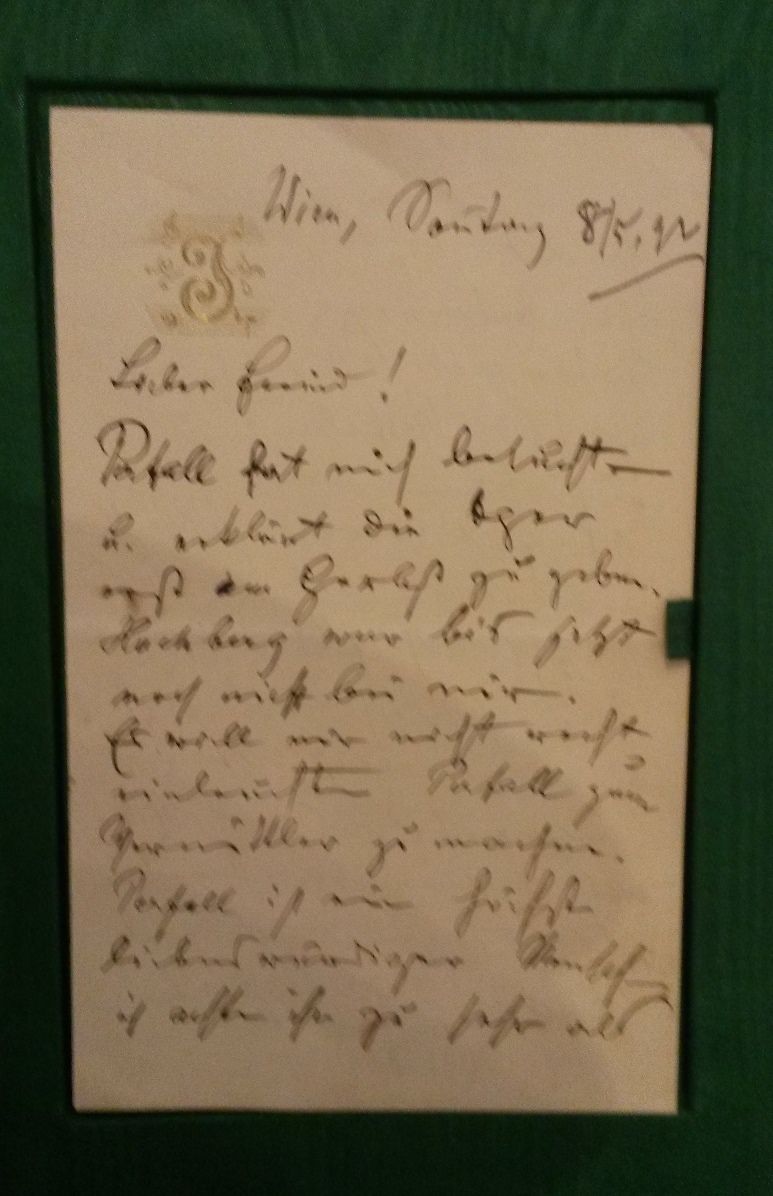 J
Wien, Sonntag 8/5. 92
Lieber Freund!
hat mich besucht
u. erklärt die Oper
erst im Herbst zu geben.
Hochberg war bis jetzt
noch nicht bei mir.
Es will mir nicht recht
einleuchten zum
Vermittler zu machen.
ist ein höchst
liebenswürdiger Mensch,
ich achte ihn zu sehr als